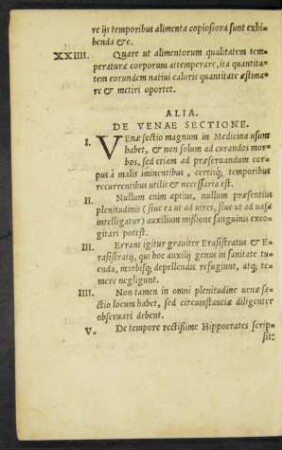 re ijs temporibus alimenta copiosiora sunt exhi-
benda &c.
XXIIII. Quare ut alimentorum qualitatem tem-
peraturæ corporum attemperare, ita quantita-
tem eorundem natiui caloris quantitate æstima-
re & metiri oportet.
ALIA.
DE VENAE SECTIONE.
I. VEnæ sectio magnum in Medicina usum
habet, & non solum ad curandos mor-
bos, sed etiam ad præseruandum cor-
pus à malis iminentibus, certisq; temporibus
recurrentibus utilis & necessaria est.
II. Nullum enim aptius, nullum præsentius
plenitudinis (siue ea ut ad uires, siue ut ad uasa
intelligatur) auxilium missione sanguinis exco-
gitari potest.
III. Errant igitur grauiter Erasistratus & E-
rasistratij, qui hoc auxilij genus in sanitate tu-
enda, morbisq; depellendis refugiunt, atq; te-
mere negligunt.
IIII. Non tamen in omni plenitudine uenæ se-
ctio locum habet, sed circumstantiæ diligenter
obseruari debent.
V. De tempore rectissime Hippocrates scrip-
sit: